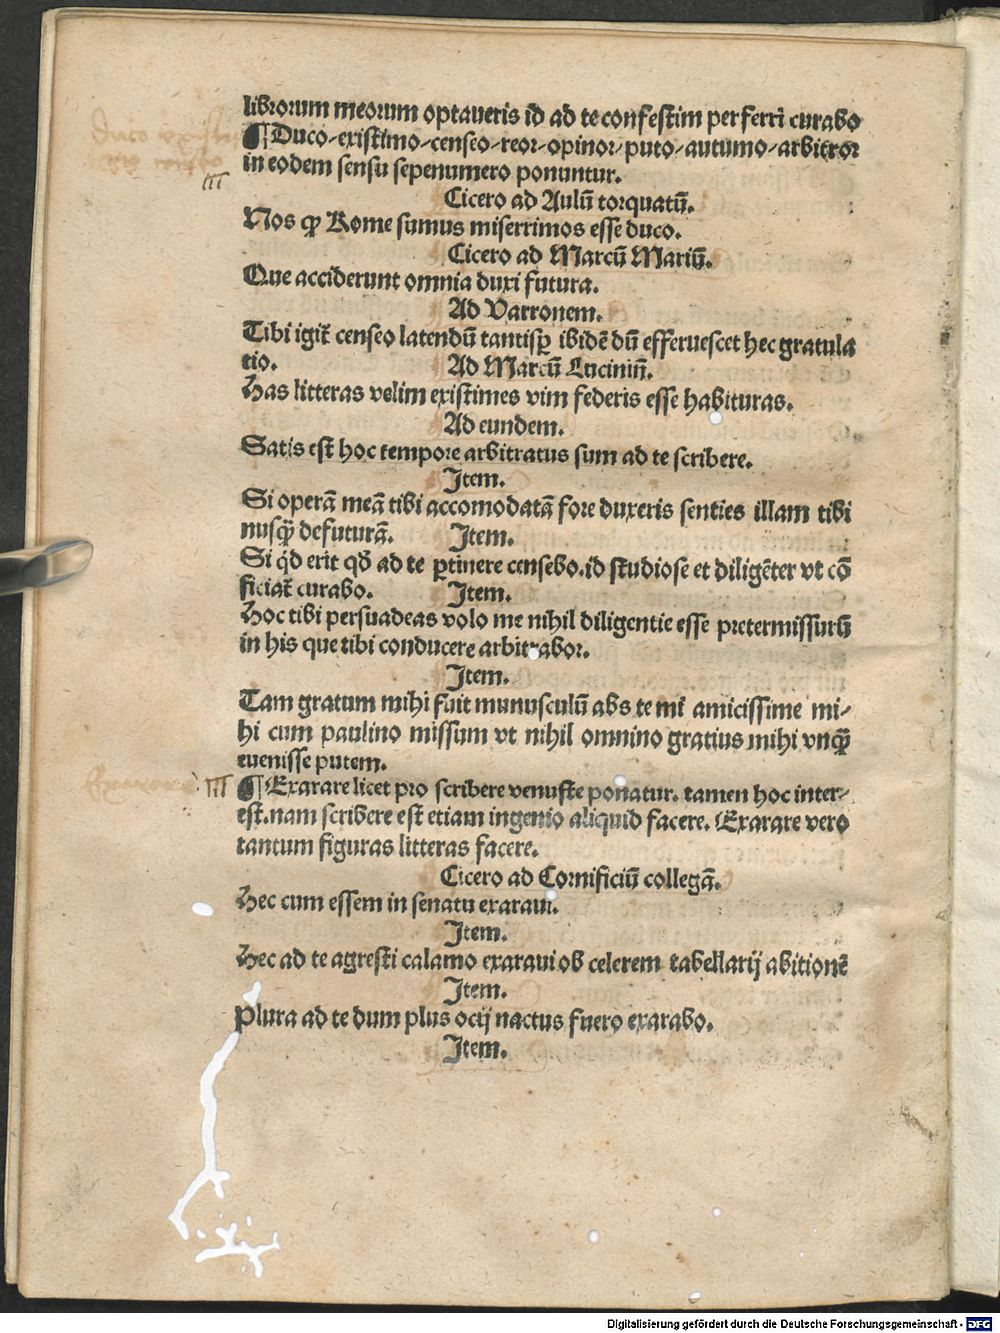 librorum meorum optaueris id ad te confestim perferri curabo
¶ Duco-existimo-censeo-reor-opinor-puto-autumo-arbitror
in eodem sensu sepenumero ponuntur.
Cicero ad Aulū torquatū.
Nos qꝫ Rome sumus miserrimos esse duco.
Cicero ad Marcū Mariū.
Que acciderunt omnia duxi futura.
Ad Varronem.
Tibi igit̄ censeo latendū tantisꝑ ibidē dū efferuescet hec gratula
tio. Ad Marcū Luciniū.
Has litteras velim existimes vim federis esse habituras.
Ad eundem.
Satis est hoc tempore arbitratus sum ad te scribere.
Item.
Si operā meā tibi accomodatā fore duxeris senties illam tibi
nusqᷓ defuturā. Item.
Si qͥd erit qđ ad te ꝑtinere censebo.id studiose et diligēter vt cō
ficiat̄ curabo. Item.
Hoc tibi persuadeas volo me nihil diligentie esse pretermissurū
in his que tibi conducere arbitrabor.
Item.
Tam gratum mihi fuit munusculū abs te mi amicissime mi-
hi cum paulino missum vt nihil omnino gratius mihi vnqᷓ
euenisse putem.
III ¶ Exarare licet pro scribere venuste ponatur. tamen hoc inter-
est.nam scribere est etiam ingenio aliquid facere. Exarare vero
tantum figuras litteras facere.
Cicero ad Cornificiū collegā.
Hec cum essem in senatu exaraui.
Item.
Hec ad te agresti calamo exaraui ob celerem tabellarij abitionē
Item.
Plura ad te dum plus ocij nactus fuero exarabo.
Item.
Digitalisierung gefördert durch die Deutsche Forschungsgemeinschaft - DFG